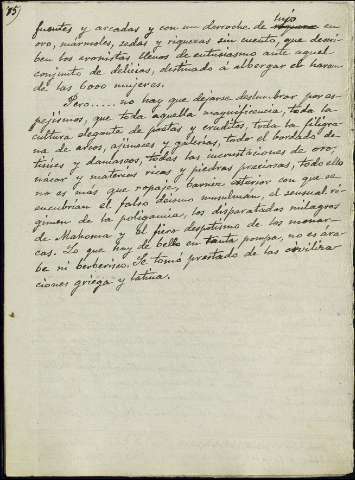 15)
fuentes y arcadas y con un derroche de lujo en
oro, mármoles, sedas y riquezas sin cuento, que descri-
ben los cronistas llenos de entusiasmo ante aquel
conjunto de delicias, destinado á albergar el harem
de las 6000 mujeres.
Pero..... no hay que dejarse deslumbrar por es-
pejismos, que toda aquella magnificencia, toda la
cultura elegante de poetas y eruditos, toda la filigra-
na de arcos, ajimeses y galerías, todo el bordado de
tisúes y damascos, todas las incrustaciones de oro,
nácar y materias ricas y piedras preciosas, todo ello
no es más que ropaje, barniz exterior con que se
encubrían el falso deismo musulman, el sensual ré-
gimen de la poligamia, los disparatados milagros
de Mahoma y el fiero despotismo de los monar-
cas. Lo que hay de bello en tanta pompa, no es ára-
be ni berberisco. Se tomó prestado de las civiliza-
ciones griega y latina.